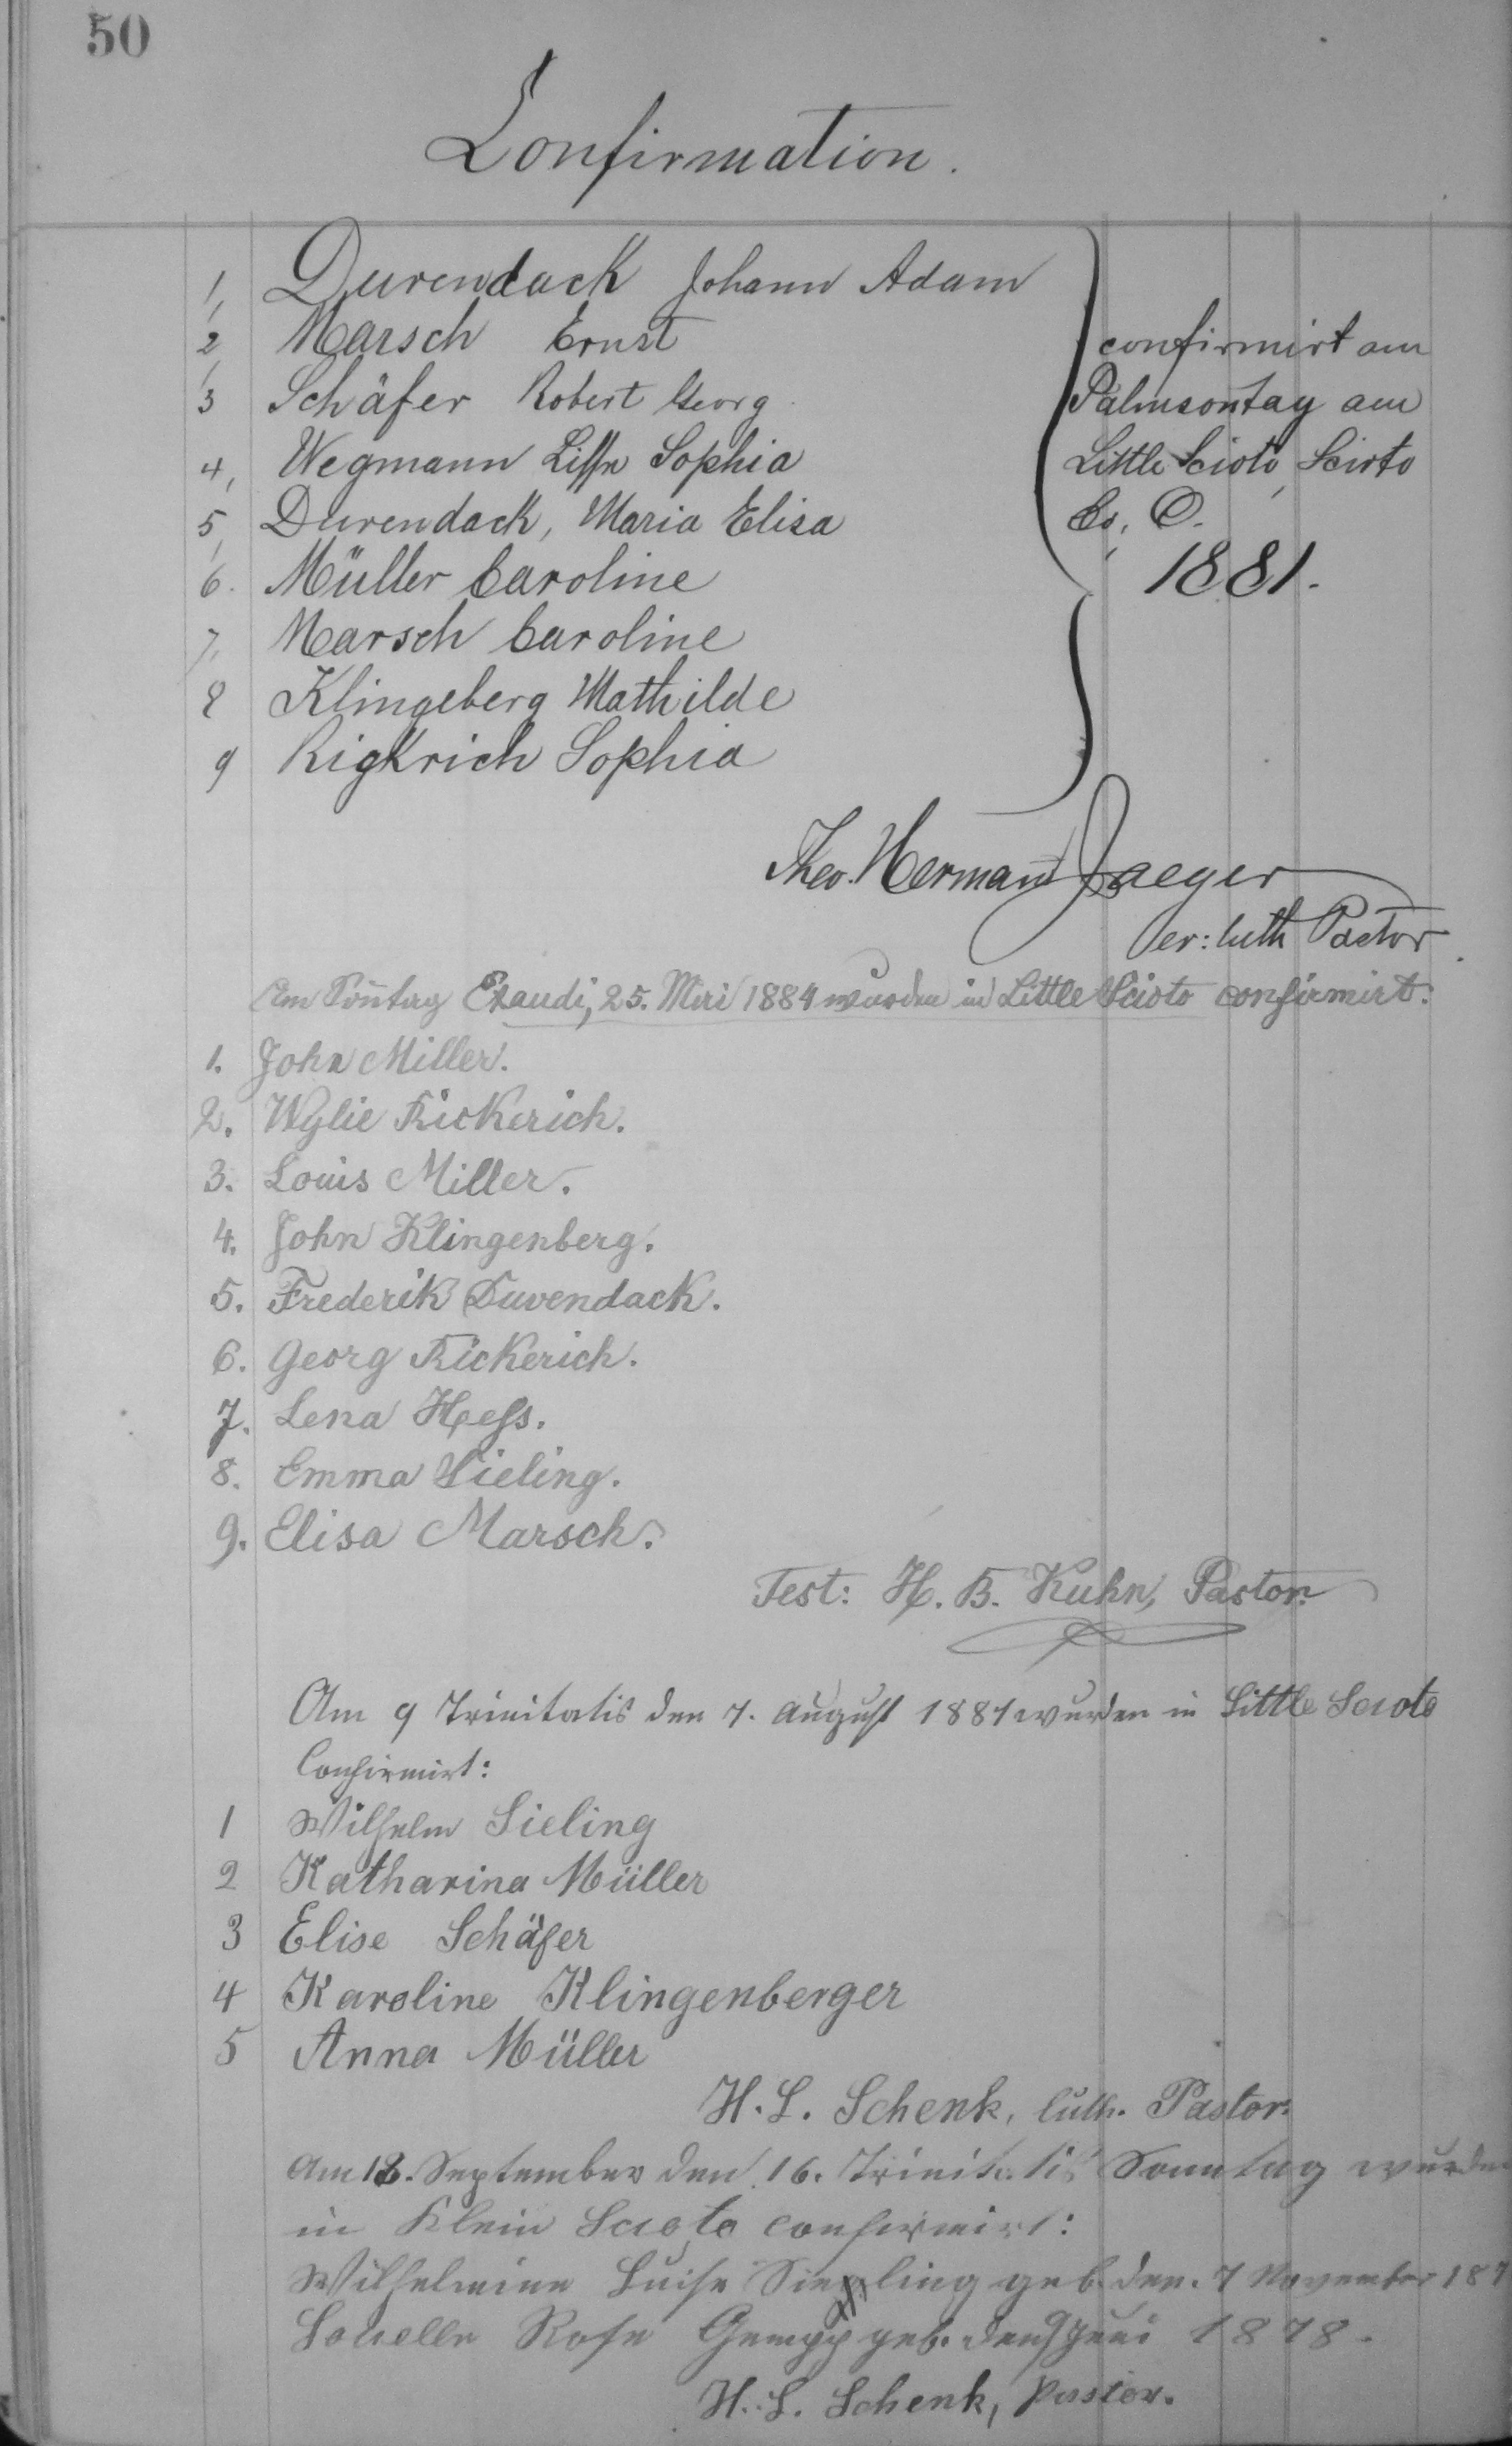 50
Confirmation.
1, Duvendack Johann Adam
2, Marsch Ernst
3 Schäfer Robert Georg
4, Wegmann Sophia
5, Duvendack, Maria Elisa
6. Müller Caroline
7, Marsch Caroline
8 Klingeberg Mathilde
9 Rigkrich Sophia
confirmirt am
Palmsontag am
Little Scioto, Scioto
Co, O.
1881.
Theo. Hermann Jaeger
ev: luth Pastor
Am Sontag Exaudi, 25. Mai 1884 wurden in Little Scioto confirmirt:
1. John Miller.
2. Wylie Rickerich.
3. Louis Miller.
4. John Klingenberg.
5. Frederik Duvendack.
6. Georg Rickerich.
7. Lena Heſs.
8. Emma Sieling.
9. Elisa Marsch.
Test: H. B. Kuhn, Pastor.
Am 9 Trinitatis den 7. August 1887 wurden in Little Scioto
Confirmirt:
1 Wilhelm Sieling
2 Katharina Müller
3 Elise Schäfer
4 Karoline Klingenberger
5 Anna Müller
H. L. Schenk, luth. Pastor.
Am 18. September den 16. Trinitatis Sonntag wurden
in Klein Scioto confirmirt:
Wilhelmine Luise Siegling geb. den. 7 November 187
Rosa Gampp geb. den 9 Juni 1878.
H. L. Schenk, Pastor.